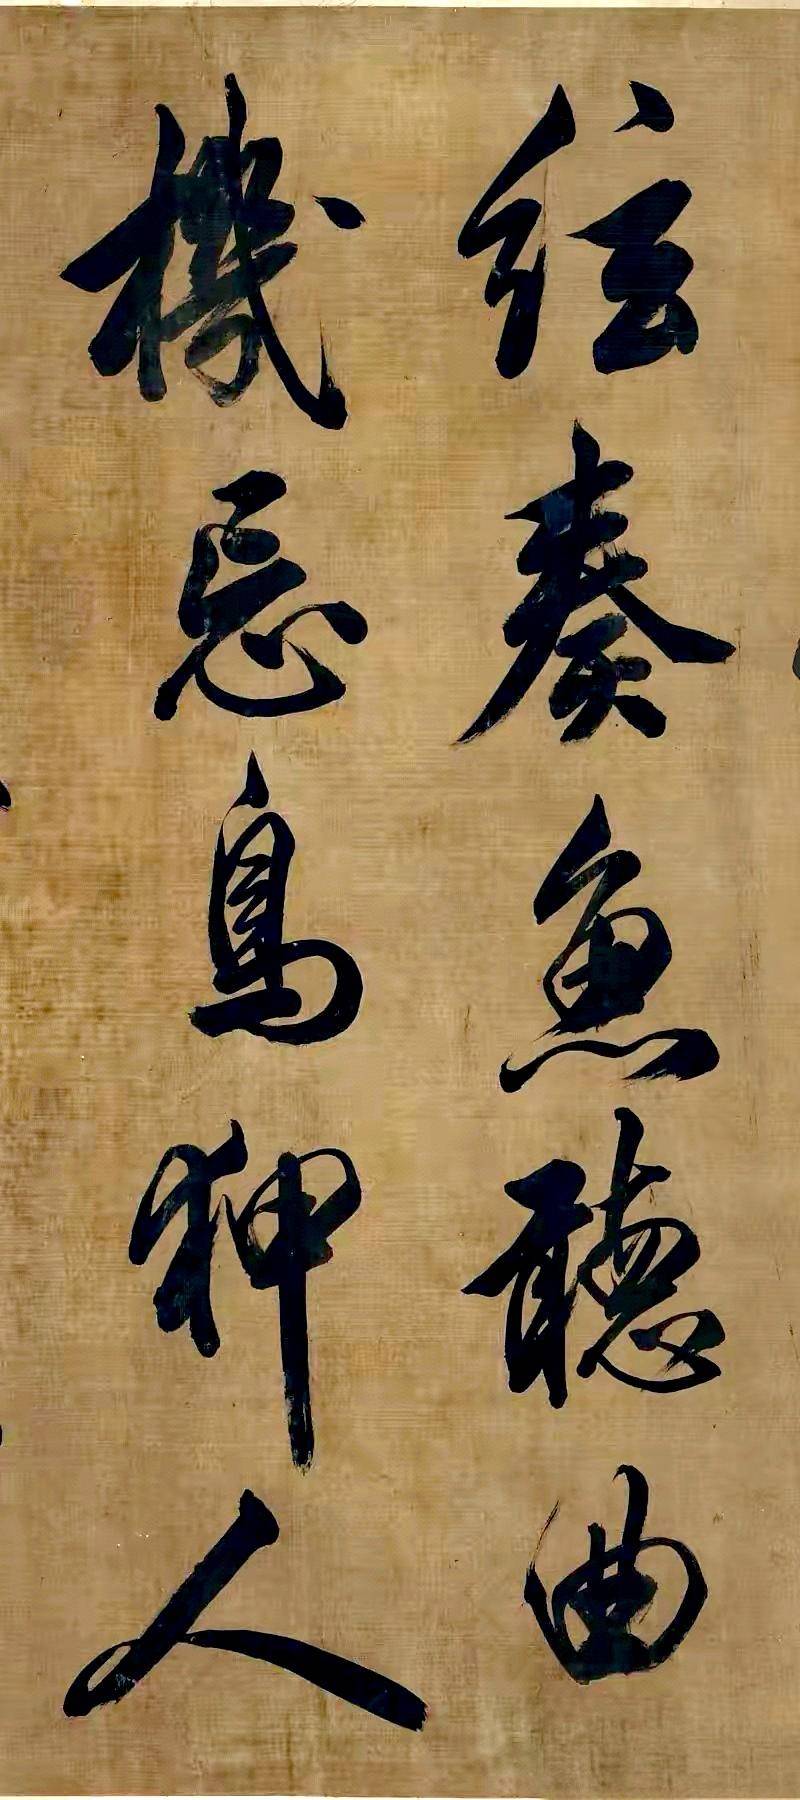 絃奏魚聽曲
機忘鳥狎人